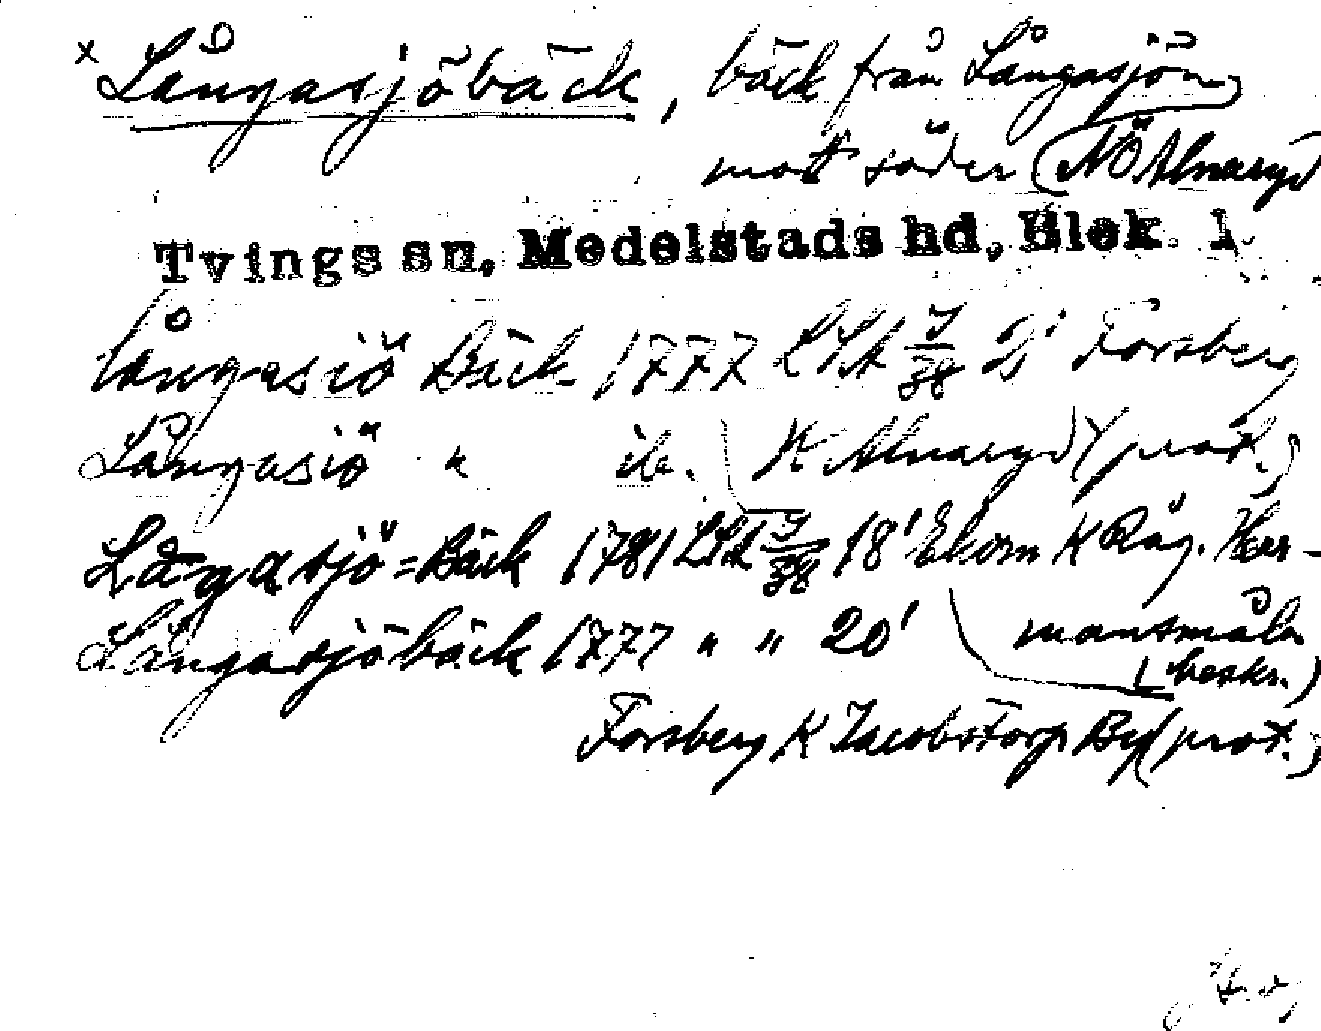 x Långasjöbäck, bäck från Långasjön
mot söder (NÖ Alnaryd
Tvings sn, Medelstads hd, Blek. l.
långasiö Bäck 1777 LSA J/38 2¹ Forsberg
Långasiö " ib. K Alnaryd (prot.)
Lågasjö=Bäck 1781 LSA J/38 18¹ Ekorn K Råg. Her-
Långasjöbäck 1777 " " 20¹ mansmåla
(beskr.)
Forsberg K Jacobstorp By (prot.)